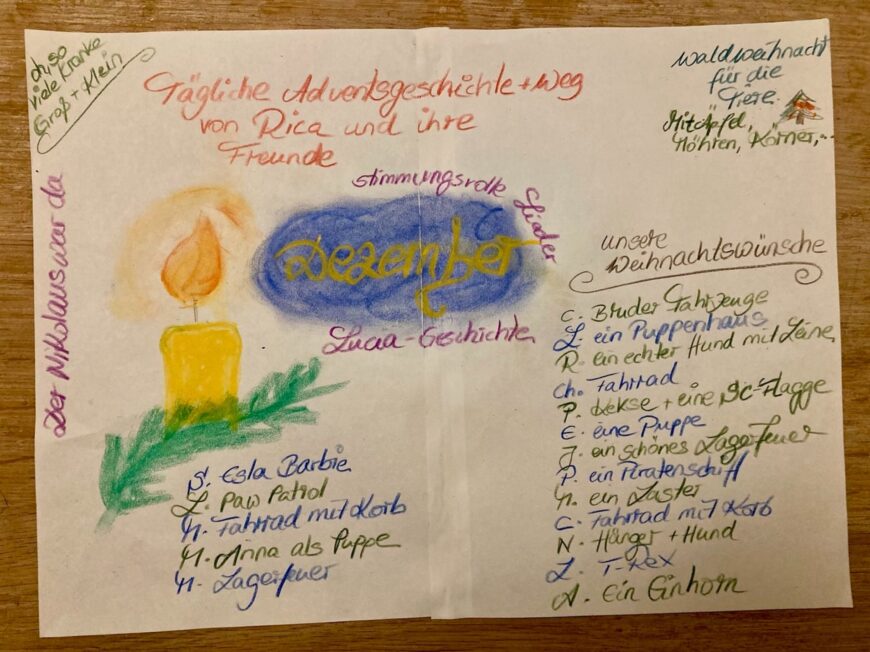 Oh, so
viele Kranke
Groß + Klein
Tägliche Adventsgeschichte + Weg
von Rica und ihre
Freunde
Waldweihnacht
für die
Tiere
Mit Äpfel,
Möhren, Körner,...
Der Nikolaus war da
stimmungsvolle Lieder
Dezember
Lucia-Geschichte
unsere
Weihnachtswünsche
C. Bruder Fahrzeuge
L. ein Puppenhaus
R. ein echter Hund mit Leine
Ch. Fahrrad
P. Kekse + eine SC-Flagge
E. eine Puppe
J. ein schönes Lagerfeuer
P. ein Piratenschiff
M. ein Laster
C. Fahrrad mit Korb
N. Hänger + Hund
L. T-Rex
A. Ein Einhorn
S. Esla Barbie
L. Paw Patrol
M. Fahrrad mit Korb
M. Anna als Puppe
M. Lagerfeuer